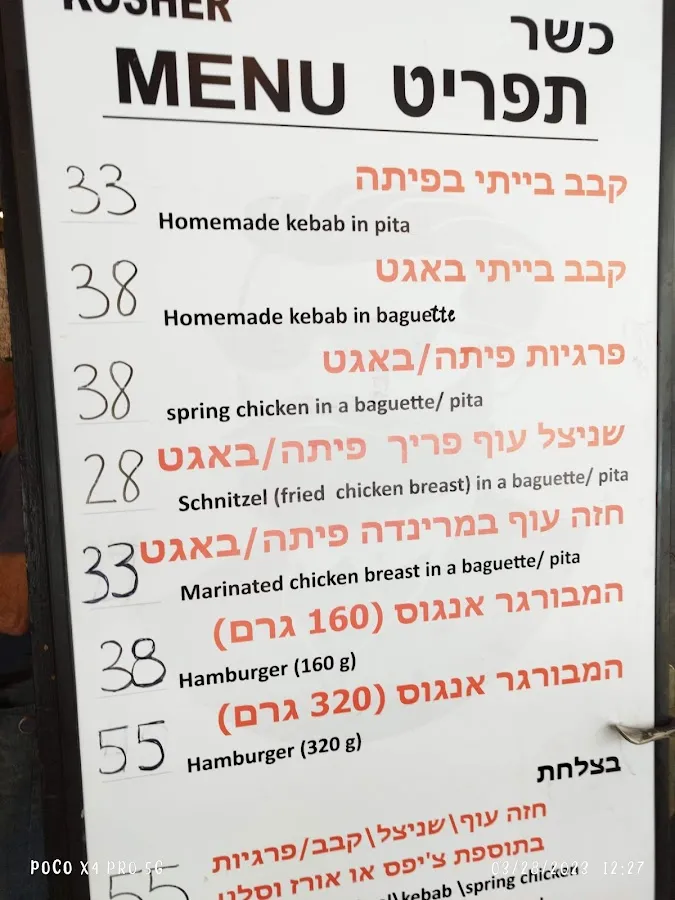 KOSHER
כשר
MENU תפריט
33 קבב בייתי בפיתה
Homemade kebab in pita
38 קבב בייתי באגט
Homemade kebab in baguette
38 פרגיות פיתה/באגט
spring chicken in a baguette/ pita
28 שניצל עוף פריך פיתה/באגט
Schnitzel (fried chicken breast) in a baguette/ pita
33 חזה עוף במרינדה פיתה/באגט
Marinated chicken breast in a baguette/ pita
38 המבורגר אנגוס (160 גרם)
Hamburger (160 g)
55 המבורגר אנגוס (320 גרם)
Hamburger (320 g)
בצלחת
חזה עוף\שניצל\קבב/פרגיות
55 בתוספת צ'יפס או אורז וסלט
\kebab \spring chicken
POCO X4 PRO 5G
03/28/2023 12:27